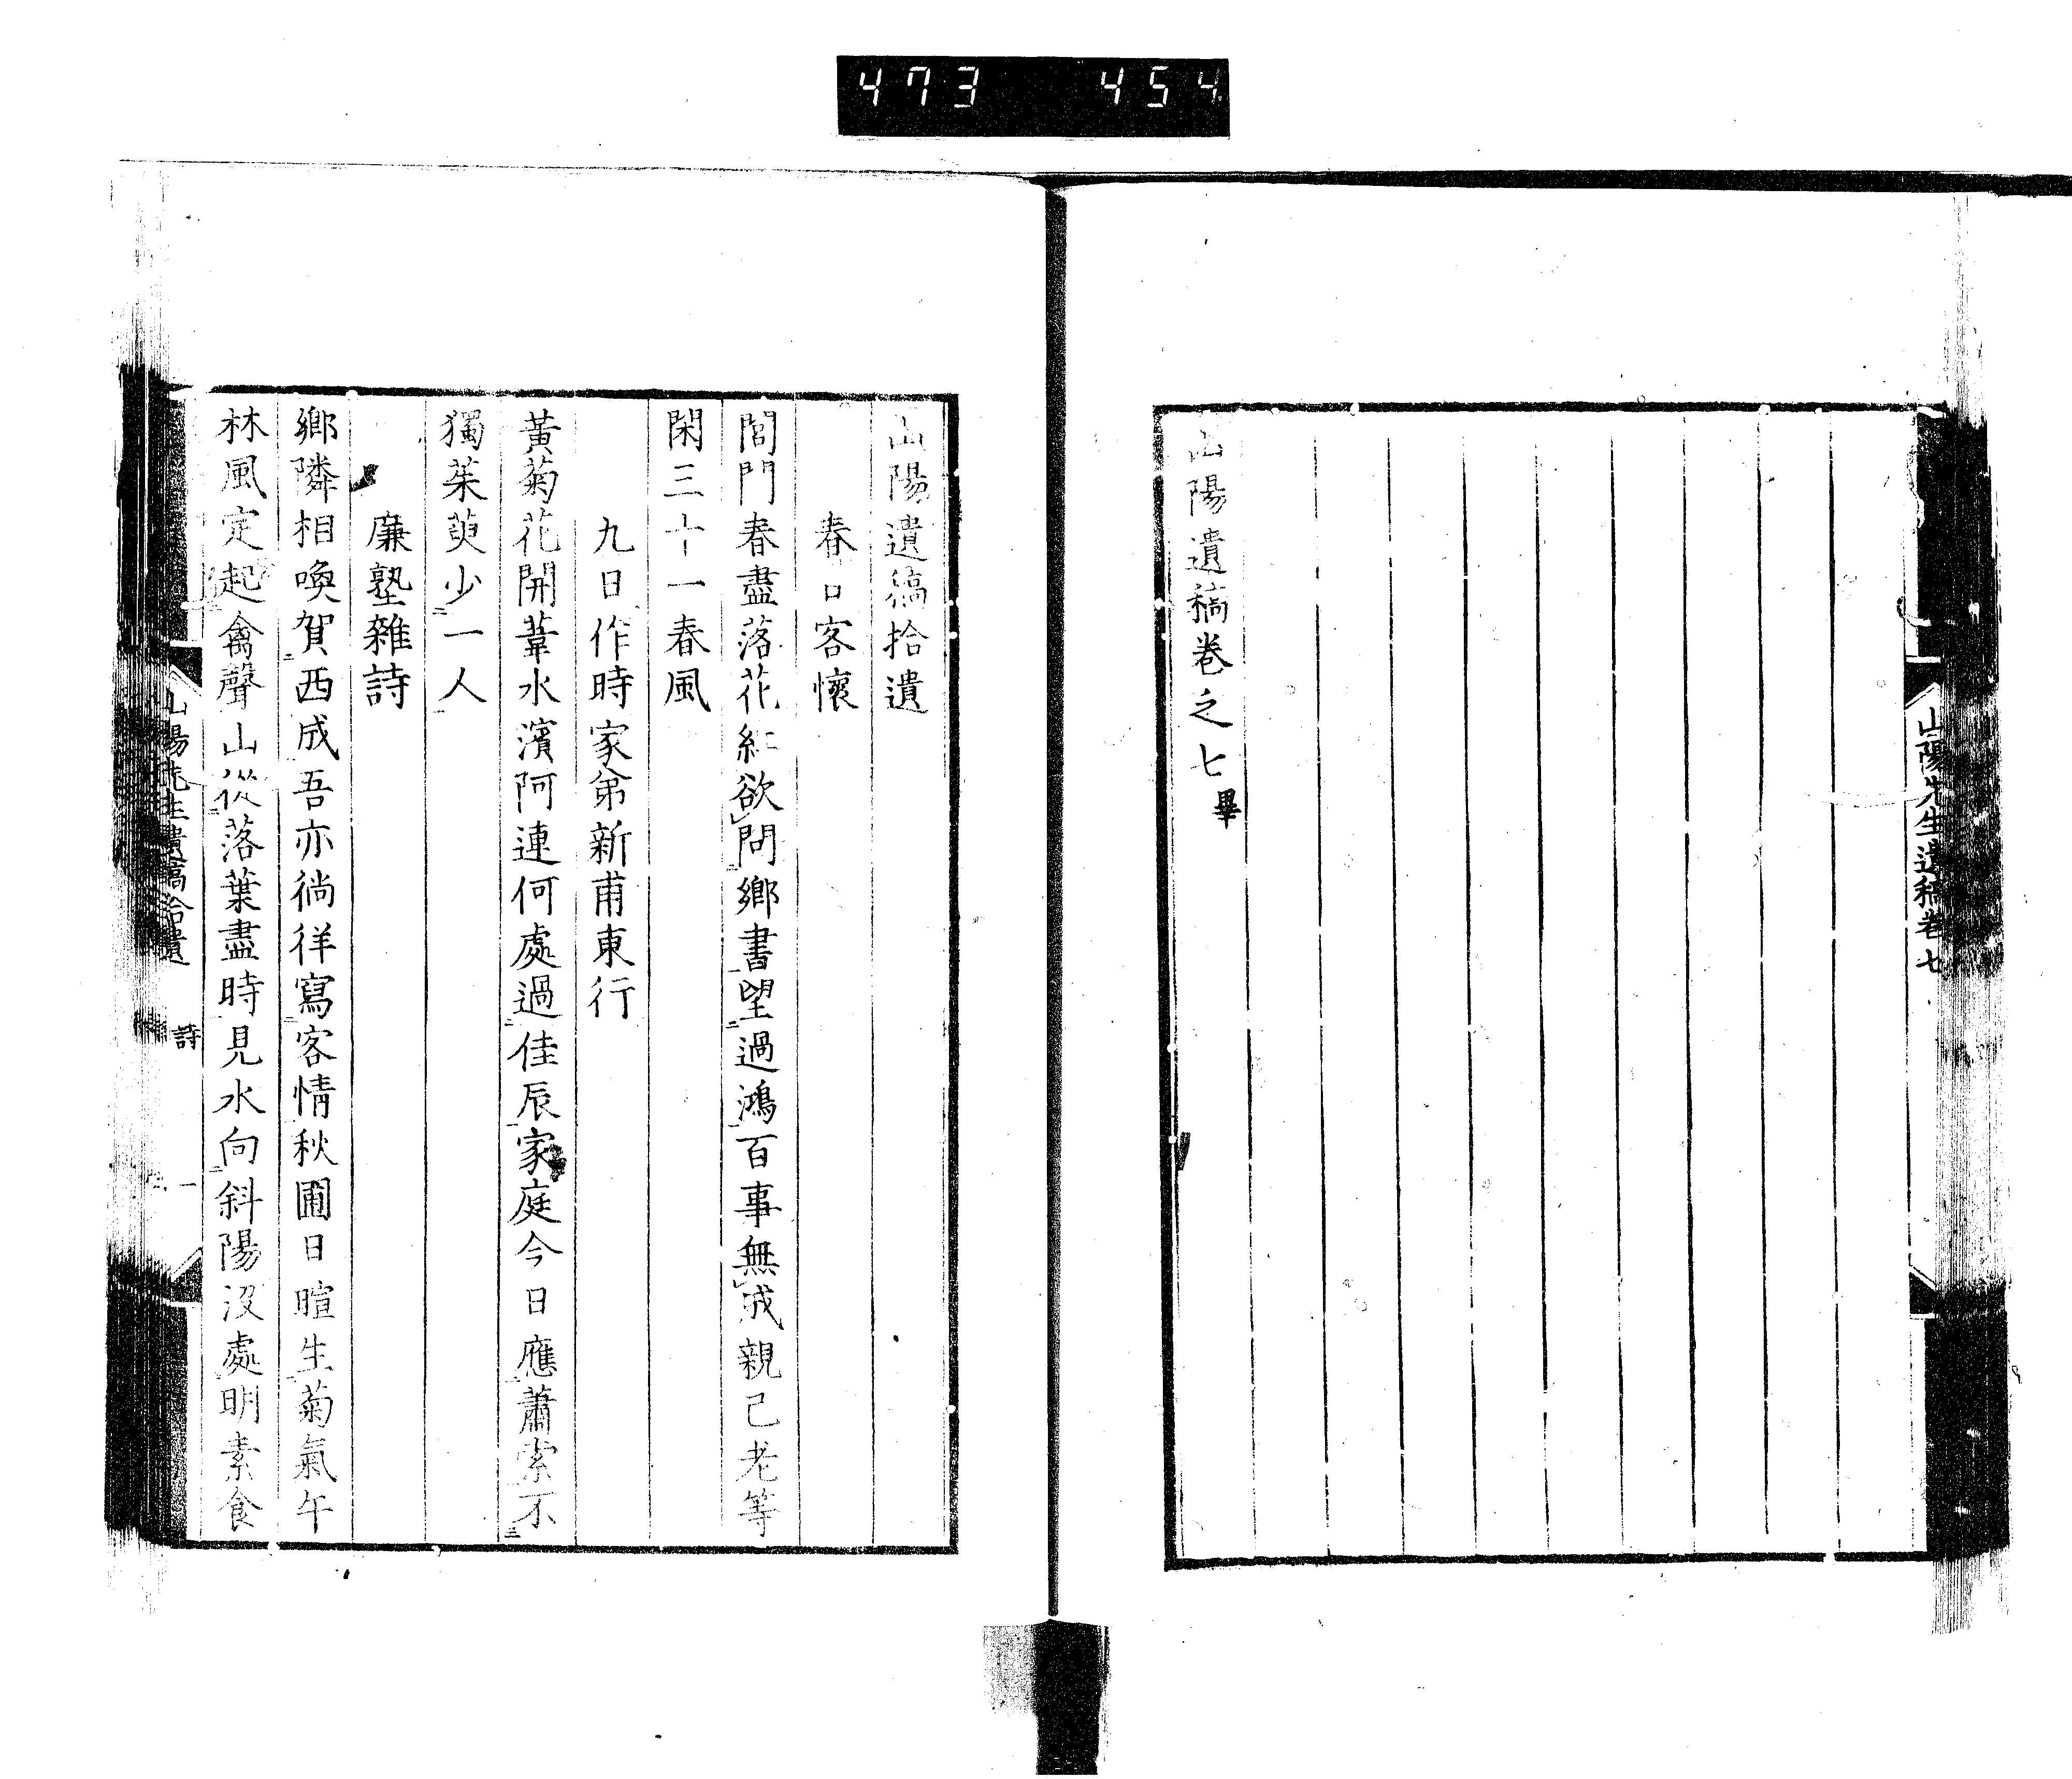 473 454
山陽先生遺稿卷七
山陽遺稿卷之七畢
山陽遺稿拾遺
春日客懷
閭門春盡落花紅欲問鄉書望過鴻百事無成親已老等
閑三十一春風
九日作時家弟新甫東行
黃菊花開葦水濱阿連何處過佳辰家庭今日應蕭索不
獨茱萸少一人
廉塾雜詩
鄉隣相喚賀西成吾亦徜徉寫客情秋圃日暄生菊氣午
林風定起禽聲山從落葉盡時見水向斜陽沒處明素食
山陽先生遺稿拾遺 詩 一